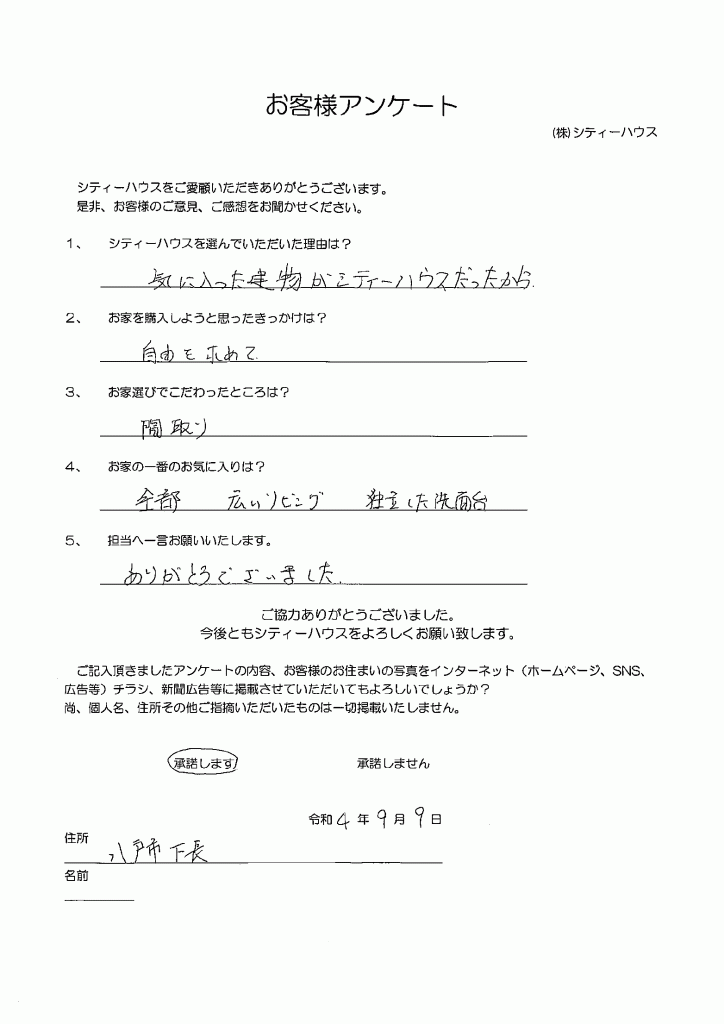 お客様アンケート
(株)シティーハウス
シティーハウスをご愛顧いただきありがとうございます。
是非、お客様のご意見、ご感想をお聞かせください。
1、 シティーハウスを選んでいただいた理由は?
気に入った建物がシティーハウスだったから.
2、 お家を購入しようと思ったきっかけは?
自由を求めて
3、 お家選びでこだわったところは?
間取り
4、 お家の一番のお気に入りは?
全部 広いリビング 独立した洗面台
5、 担当へ一言お願いいたします。
ありがとうございました.
ご協力ありがとうございました。
今後ともシティーハウスをよろしくお願い致します。
ご記入頂きましたアンケートの内容、お客様のお住まいの写真をインターネット(ホームページ、SNS、
広告等)チラシ、新聞広告等に掲載させていただいてもよろしいでしょうか?
尚、個人名、住所その他ご指摘いただいたものは一切掲載いたしません。
承諾します 承諾しません
令和 4 年 9 月 9 日
住所 八戸市 下長
名前